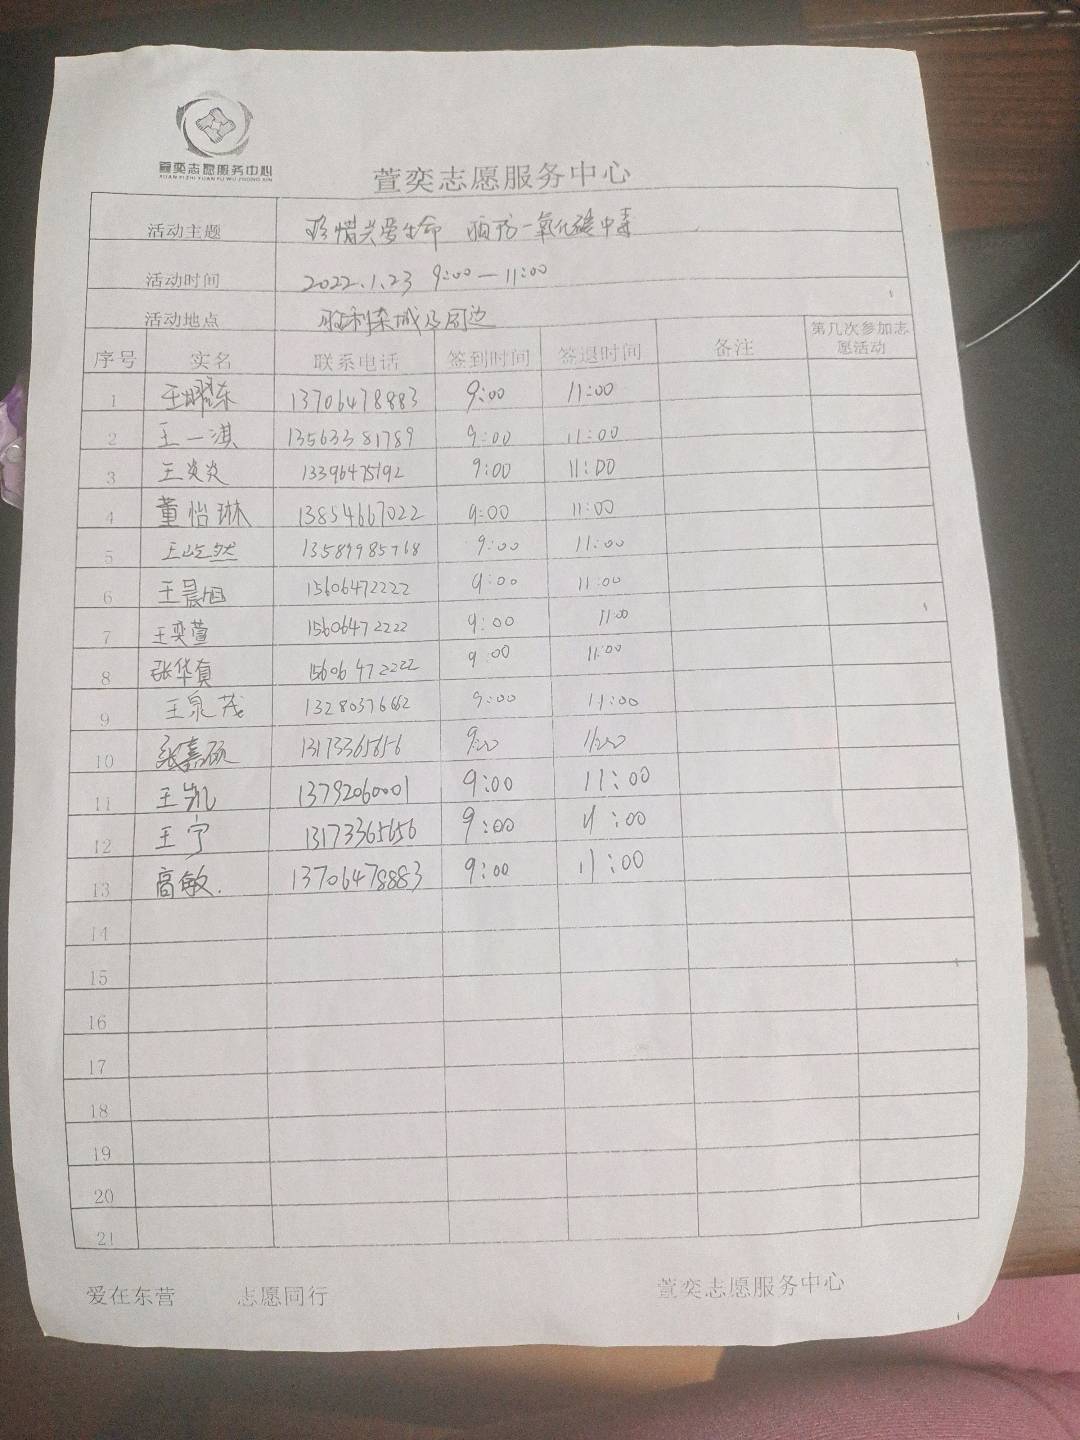 萱奕志愿服务中心
XUAN YI ZHI YUAN FU WU ZHONG XIN
萱奕志愿服务中心
活动主题 珍惜关爱生命 预防一氧化碳中毒
活动时间 2022.1.23 9:00—11:00
活动地点 胜利荣城及周边
序号 实名 联系电话 签到时间 签退时间 备注 第几次参加志愿活动
1 王曜东 13706478883 9:00 11:00
2 王一淇 13563381789 9:00 11:00
3 王炎炎 13396475192 9:00 11:00
4 董怡琳 13854667022 9:00 11:00
5 王屹然 13589985768 9:00 11:00
6 王晨旭 15606472222 9:00 11:00
7 王奕萱 15606472222 9:00 11:00
8 张华贞 15606472222 9:00 11:00
9 王泉茂 13280376662 9:00 11:00
10 张嘉硕 13173365656 9:00 11:00
11 王凯 13792060001 9:00 11:00
12 王宁 13173365656 9:00 11:00
13 高敏. 13706478883 9:00 11:00
14
15
16
17
18
19
20
21
爱在东营 志愿同行 萱奕志愿服务中心